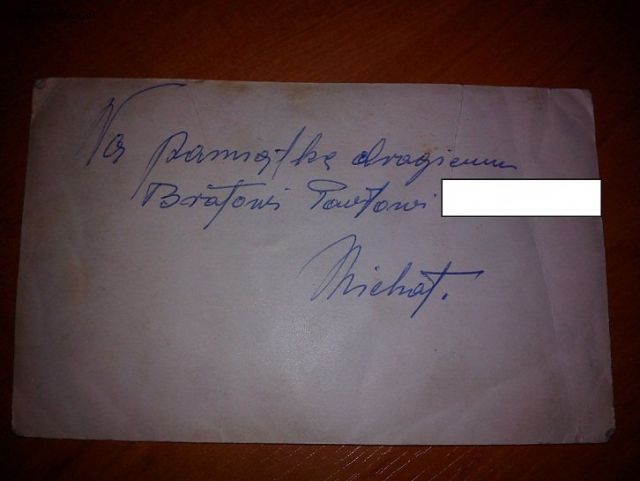 Na pamiątkę drogiemu
Bratowi Pawłowi
Michał.